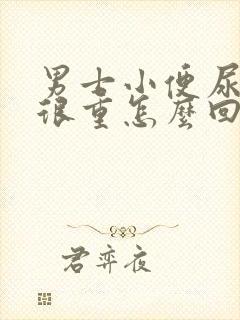 男士小便尿
很重怎麼回
君弈夜